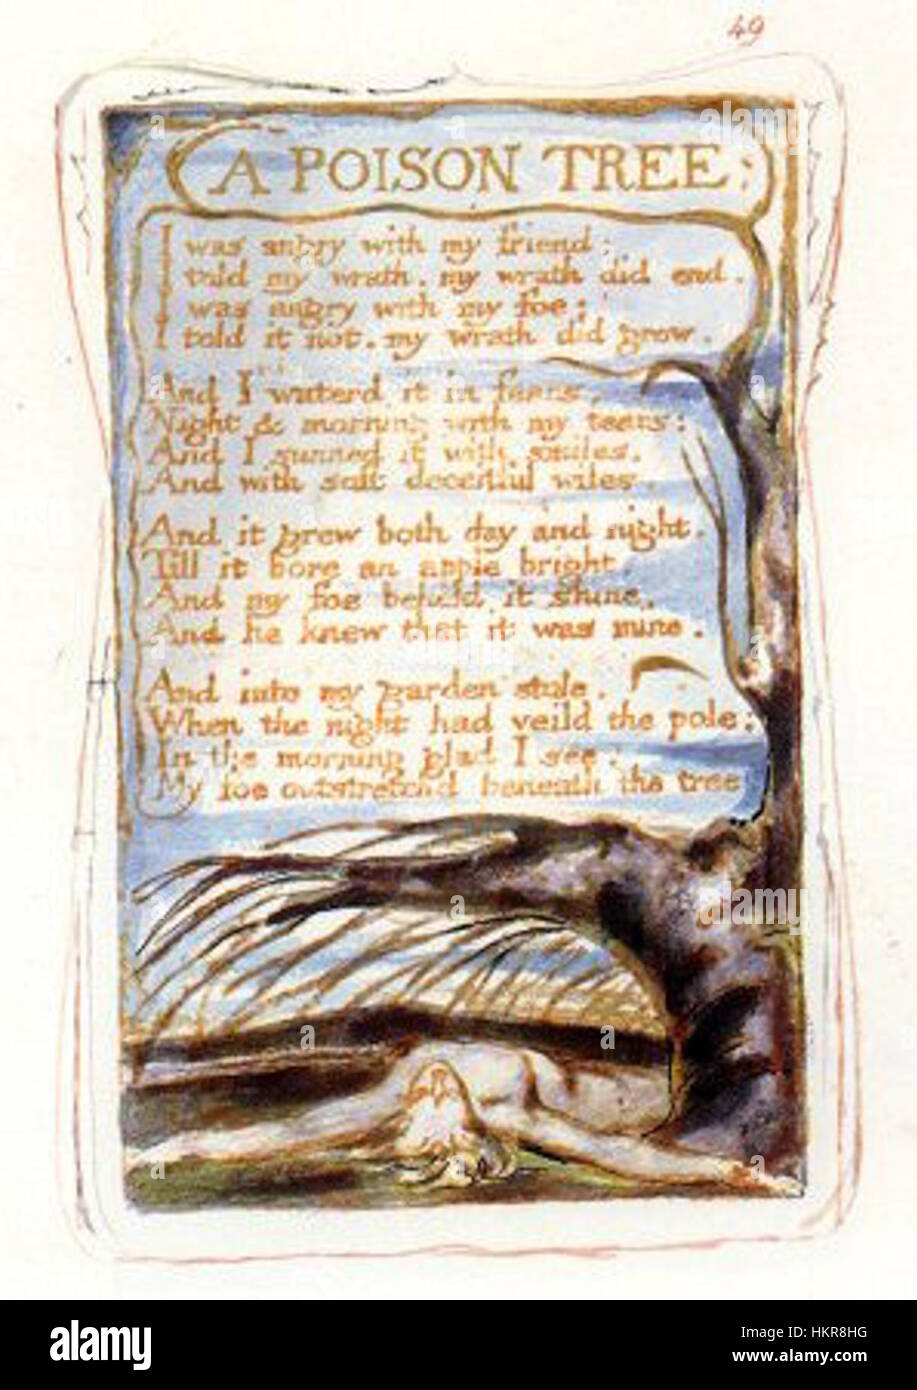 49
A POISON TREE:
I was angry with my friend:
I told my wrath, my wrath did end.
I was angry with my foe:
I told it not, my wrath did grow.
And I waterd it in fears,
Night & morning with my tears:
And I sunned it with smiles,
And with soft deceitful wiles.
And it grew both day and night.
Till it bore an apple bright.
And my foe beheld it shine,
And he knew that it was mine.
And into my garden stole,
When the night had veild the pole:
In the morning glad I see;
My foe outstretchd beneath the tree
alamy
alamy
Image ID: HKR8HG
www.alamy.com